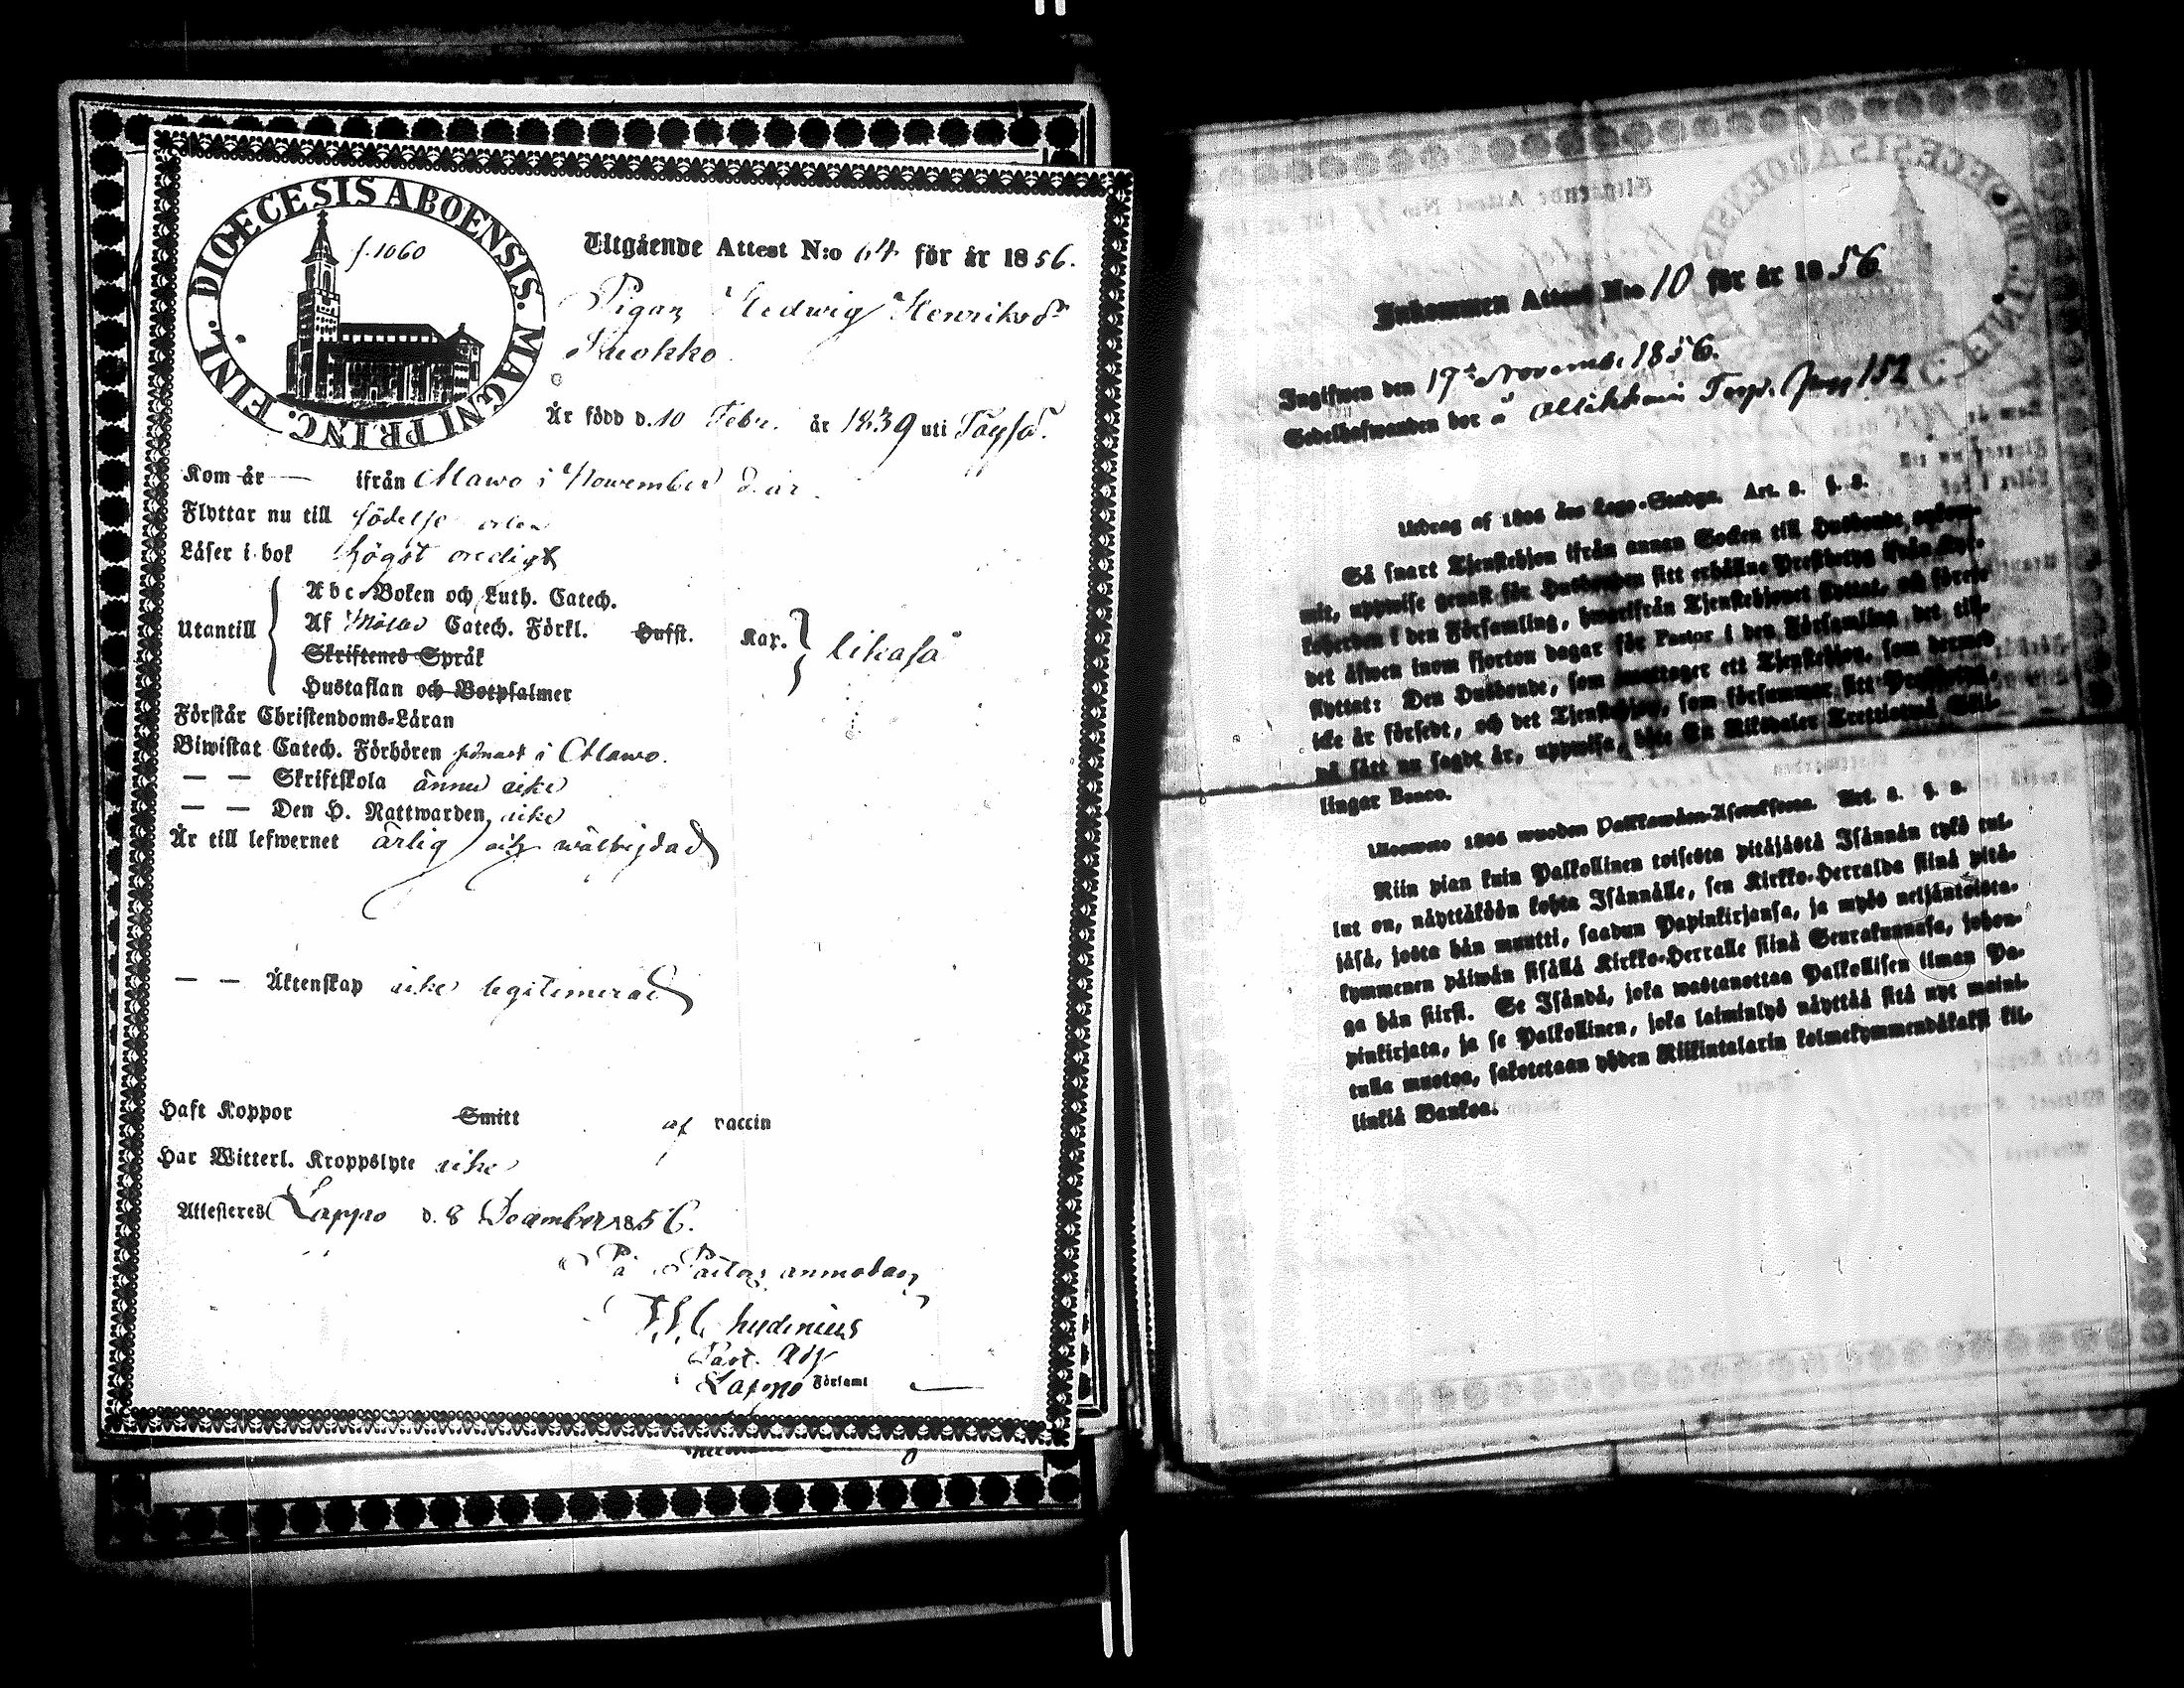 DIOECESIS ABOENSIS. MAGNI PRINC. FINL.
f. 1060
Utgående Attest N:o 64 för år 1856.
Pigan Hedwig Henriksdr
Kuokko
Är född d. 10 Febr. år 1839 uti Töysä.
Kom år — ifrån Alawo i November d. år.
Flyttar nu till födelse orten
Läser i bok högst oredigt
Utantill
A b c-Boken och Luth. Catech.
Af Catech. Förkl. Husst. Kar. likaså
Skriftenes Språk
Hustaflan och Botpsalmer
Förstår Christendoms-Läran
Biwistat Catech. Förhören i Alawo.
— — Skriftskola ännu icke
— — Den H. Nattwarden icke
Är till lefwernet ärlig och wälbejdad
— — Äktenskap icke legitimerad
Haft Koppor Smitt af vaccin
Har Witterl. Kroppslyte icke
Attesteres Lappo d. 8 December 1856.
På Pastors anmodan
Chydenius
Past. Adj
Lappo Församl
Inkommen Attest N:o 10 för år 1856
Ingifwen den 17 November 1856.
Sedelhafwanden bor å Torp. Pag 152
Utdrag af 1805 års Lego-Stadga. Art. 2. §. 8.
Så snart Tjenstehjon ifrån annan Socken till Husbonde ankom-
mit, uppwise genast för Husbonden sitt erhållne Prestbetyg ifrån Kyr-
koherden i den Församling, hwarifrån Tjenstehjonet flyttat, och förete
det äfwen inom fjorton dagar för Pastor i den Församling det till-
flyttat: Den Husbonde, som emottager ett Tjenstehjon, som dermed
icke är försedt, och det Tjenstehjon, som försummar sitt Prestbetyg,
på sätt nu sagdt är, uppwisa, böte En Riksdaler Trettiotwå Skil-
lingar Banco.
Ulosweto 1805 wuoden Palkkawäen-Asetuksesta. Art. 2. §. 8.
Niin pian kuin Palkollinen toisesta pitäjästä Isännän tykö tul-
lut on, näyttäköön kohta Isännälle, sen Kirkko-Herralda siinä pitä-
jäsä, josta hän muutti, saadun Papinkirjansa, ja myös neljäntoista-
kymmenen päiwän sisällä Kirkko-Herralle siinä Seurakunnasa, johon-
ga hän siirsi. Se Isändä, joka wastanottaa Palkollisen ilman Pa-
pinkirjata, ja se Palkollinen, joka laiminlyö näyttää sitä nyt maini-
tulla muotoa, sakotetaan yhden Riikintalarin kolmekymmendäkaksi kil-
linkiä Bankoa.